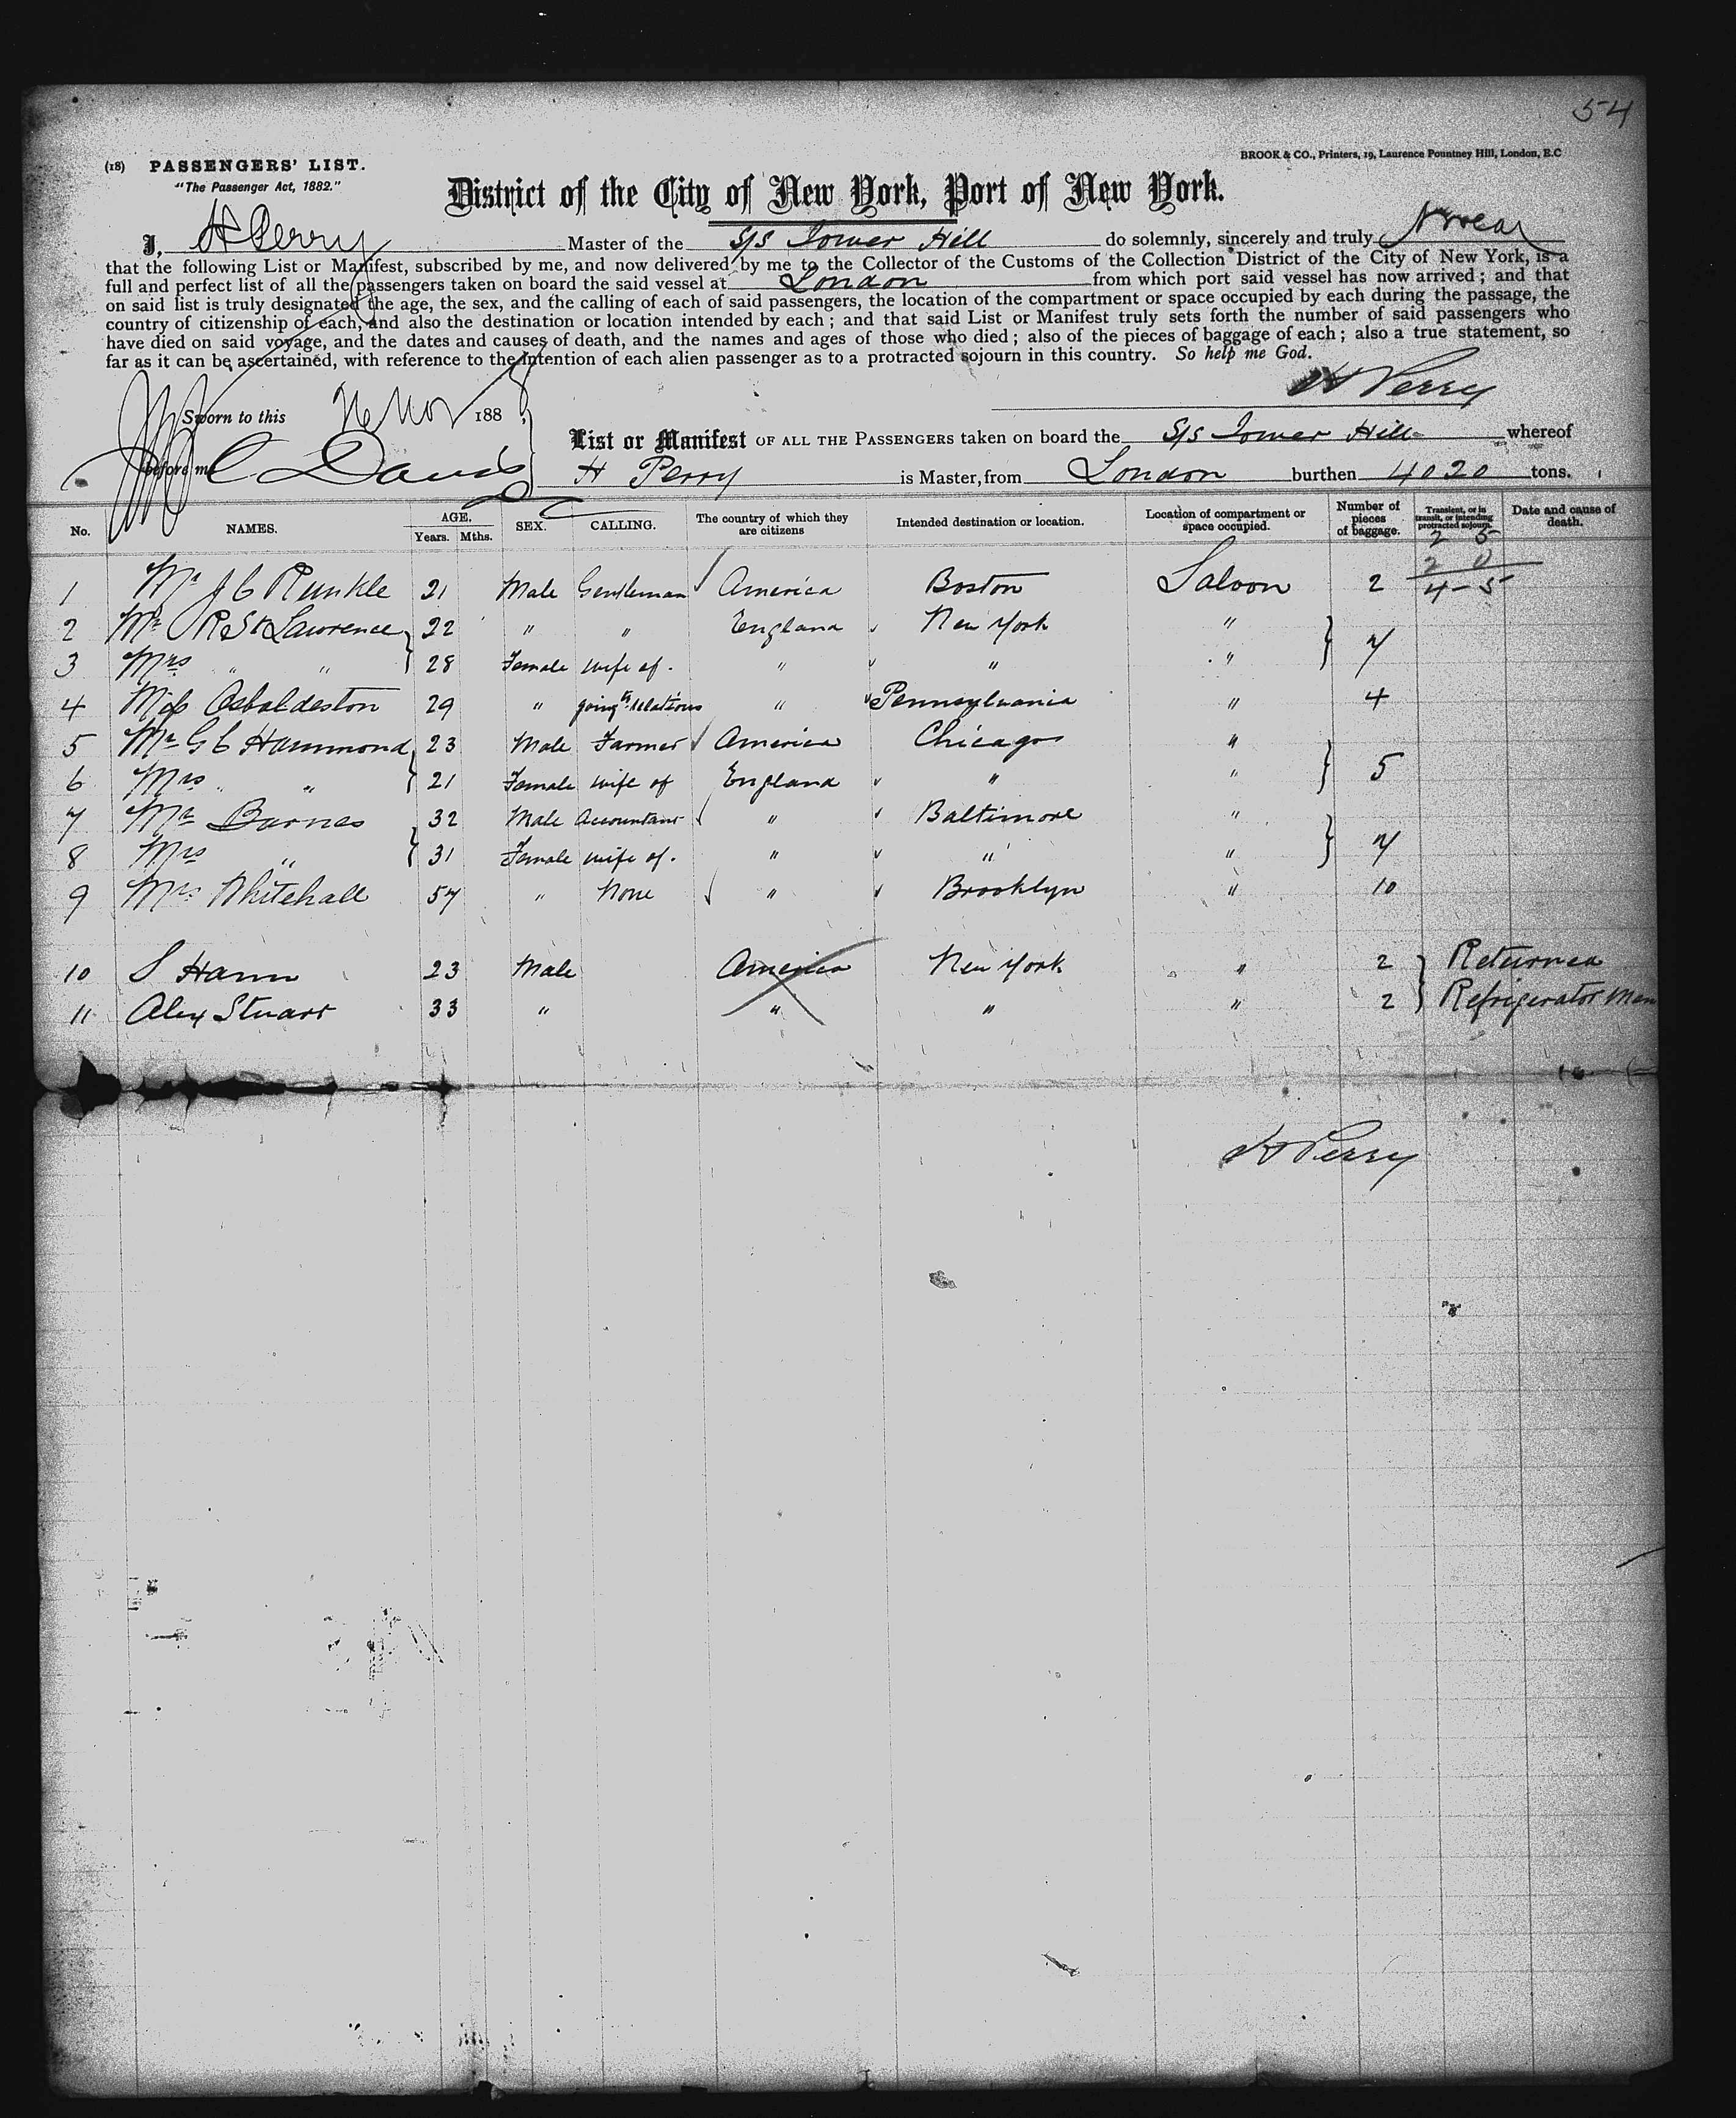 54
(18) PASSENGERS' LIST.
BROOK & CO., Printers, 19, Laurence Pountney Hill, London, E.C
"The Passenger Act, 1882."
District of the City of New York, Port of New York.
I, H Perry Master of the S/S Tower Hill do solemnly, sincerely and truly swear
that the following List or Manifest, subscribed by me, and now delivered by me to the Collector of the Customs of the Collection District of the City of New York, is a
full and perfect list of all the passengers taken on board the said vessel at London from which port said vessel has now arrived; and that
on said list is truly designated the age, the sex, and the calling of each of said passengers, the location of the compartment or space occupied by each during the passage, the
country of citizenship of each, and also the destination or location intended by each; and that said List or Manifest truly sets forth the number of said passengers who
have died on said voyage, and the dates and causes of death, and the names and ages of those who died; also of the pieces of baggage of each; also a true statement, so
far as it can be ascertained, with reference to the intention of each alien passenger as to a protracted sojourn in this country. So help me God.
H Perry
Sworn to this Nov 188
List or Manifest OF ALL THE PASSENGERS taken on board the S/S Tower Hill whereof
before me C Davis
H Perry is Master, from London burthen 4020 tons.
No. NAMES. AGE. Years. Mths. SEX. CALLING. The country of which they are citizens Intended destination or location. Location of compartment or space occupied. Number of pieces of baggage. Transient, or in transit, or intending protracted sojourn. Date and cause of death.
2 5
2 0
4-5
1 Mr J C Runkle 21 Male Gentleman America Boston Saloon 2
2 Mr R St Lawrence 22 " " England New York " 7
3 Mrs " " 28 Female wife of. " " "
4 Miss Osbaldeston 29 " going to relations " Pennsylvania " 4
5 Mr G C Hammond 23 Male Farmer America Chicago " 5
6 Mrs " " 21 Female wife of England " "
7 Mr Barnes 32 Male Accountant " Baltimore " 7
8 Mrs " 31 Female wife of. " " "
9 Mrs Whitehall 57 " None " Brooklyn " 10
10 S Hann 23 Male America New York " 2 Returned
11 Alex Stuart 33 " " " " 2 Refrigerator Men
H Perry